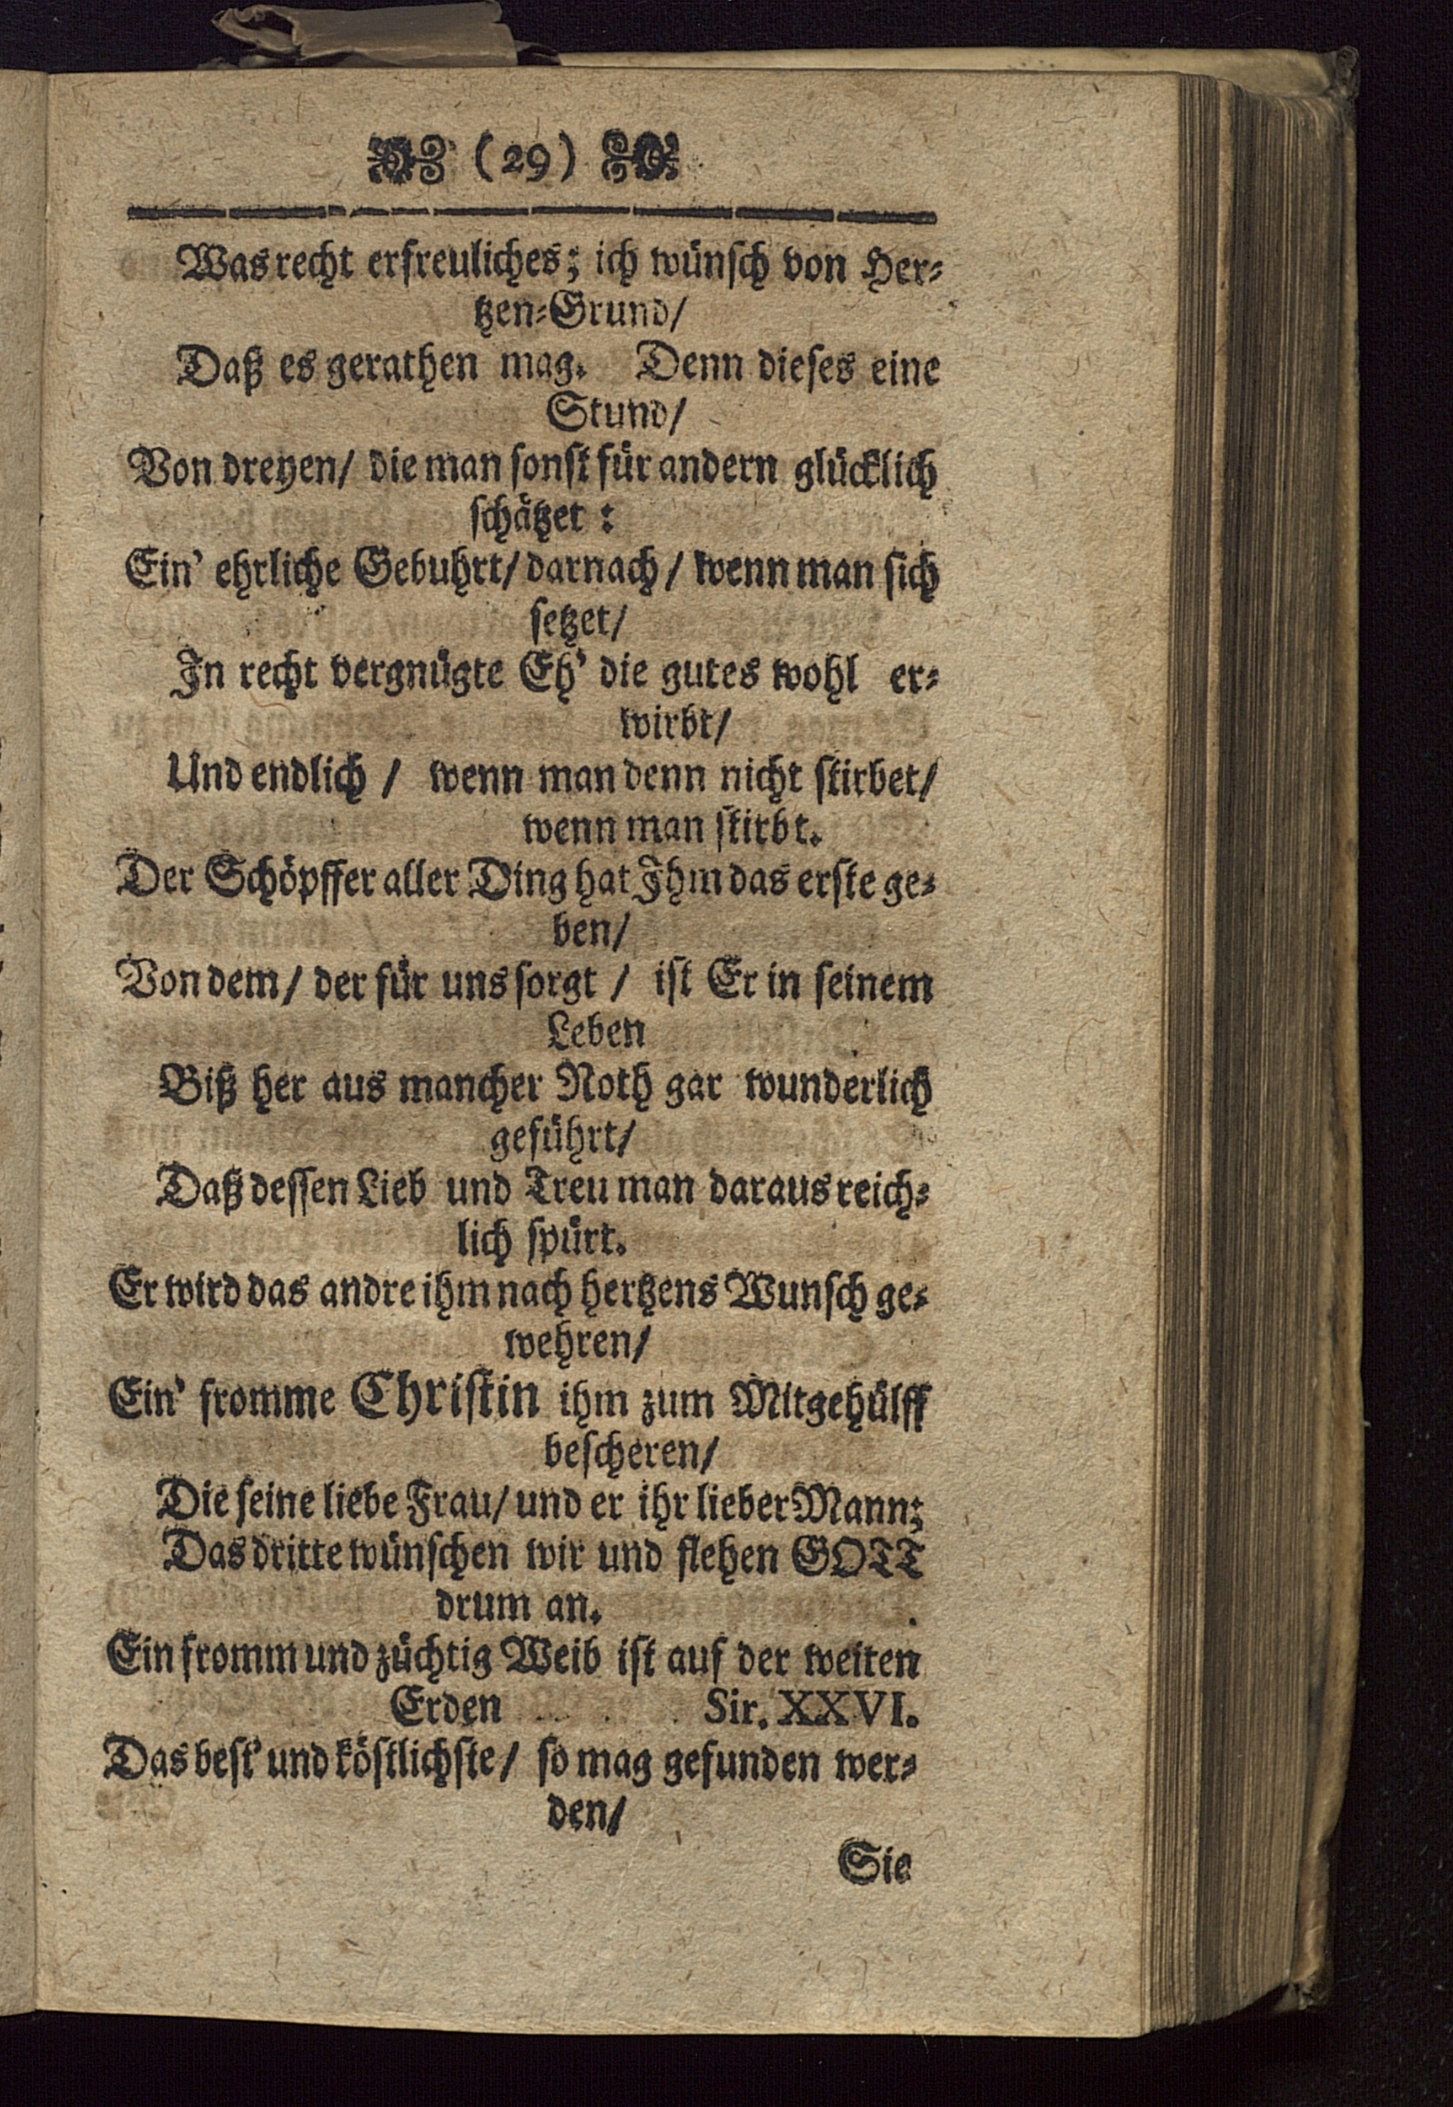 (29)
Was recht erfreuliches; ich wünsch von Her-
tzen-Grund/
Daß es gerathen mag. Denn dieses eine
Stund/
Von dreyen/ die man sonst für andern glücklich
schätzet:
Ein' ehrliche Gebuhrt/ darnach/ wenn man sich
setzet/
In recht vergnügte Eh' die gutes wohl er-
wirbt/
Und endlich/ wenn man denn nicht stirbet/
wenn man stirbt.
Der Schöpffer aller Ding hat Ihm das erste ge-
ben/
Von dem/ der für uns sorgt/ ist Er in seinem
Leben
Biß her aus mancher Noth gar wunderlich
geführt/
Daß dessen Lieb und Treu man daraus reich-
lich spürt.
Er wird das andre ihm nach hertzens Wunsch ge-
wehren/
Ein' fromme Christin ihm zum Mitgehülff
bescheren/
Die seine liebe Frau/ und er ihr lieber Mann;
Das dritte wünschen wir und flehen GOTT
drum an.
Ein fromm und züchtig Weib ist auf der weiten
Erden Sir. XXVI.
Das best' und köstlichste/ so mag gefunden wer-
den/
Sie